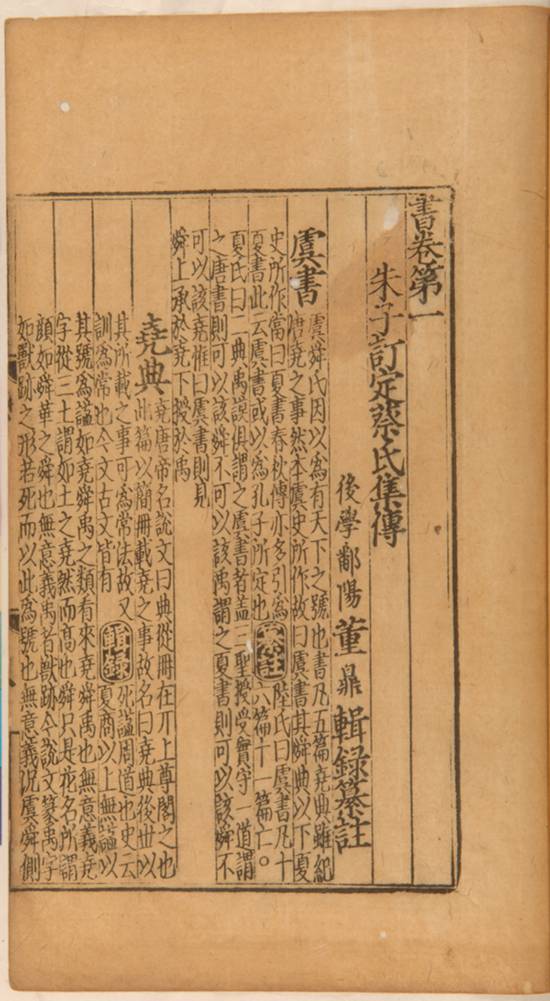 書卷第一
朱子訂定蔡氏集傳
後學鄱陽董鼎輯録纂註
虞書虞舜氏因以為有天下之號也書凡五篇堯典雖紀
唐堯之事然本虞史所作故曰虞書其舜典以下夏
史所作當曰夏書春秋傳亦多引為
夏書此云虞書或以為孔子所定也纂註陸氏曰虞書凡十
六篇十一篇亡○
夏氏曰二典禹謨俱謂之虞書者蓋三聖授受實守一道謂
之唐書則可以該舜不可以該禹謂之夏書則可以該舜不
可以該堯惟曰虞書則見
舜上承於堯下授於禹
堯典堯唐帝名說文曰典從冊在丌上尊閣之也
此篇以簡冊載堯之事故名曰堯典後世以
其所載之事可為常法故又
訓為常也今文古文皆有輯録死謚周道也史云
夏商以上無謚以
其號為謚如堯舜禹之類看來堯舜禹也無意義堯
字從三土謂如土之堯然而高也舜只是花名所謂
顏如舜華之舜也無意義禹者獸跡今說文篆禹字
如獸跡之形若死而以此為號也無意義況虞舜側